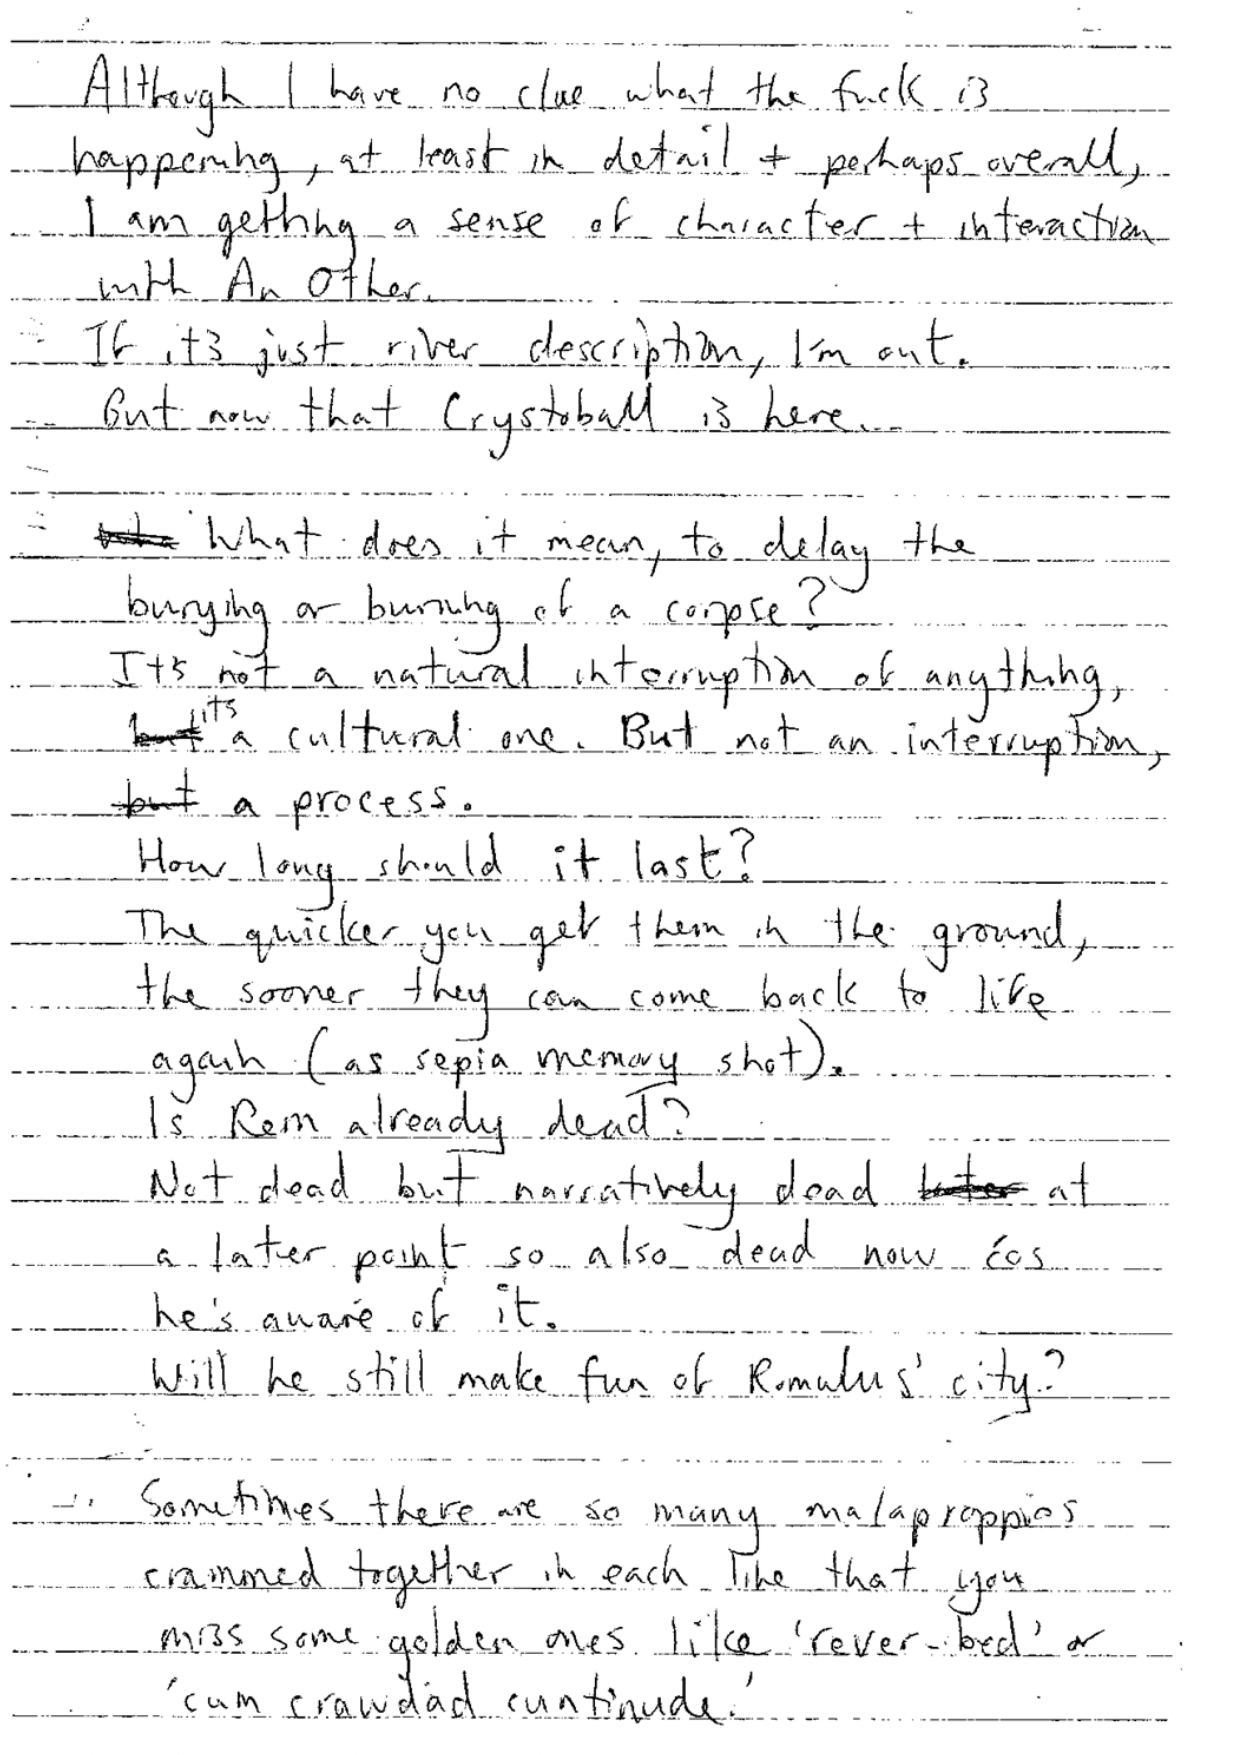 Although I have no clue what the fuck is
happening, at least in detail + perhaps overall,
I am getting a sense of character + interaction
with An Other.
If its just river description, I'm out.
But now that Crystoball is here...
What does it mean, to delay the
burying or burning of a corpse?
Its not a natural interruption of anything,
its a cultural one. But not an interruption,
but a process.
How long should it last?
The quicker you get them in the ground,
the sooner they can come back to life
again (as sepia memory shot).
Is Rem already dead?
Not dead but narratively dead at
a later point so also dead now cos
he's aware of it.
Will he still make fun of Romulus' city?
Sometimes there are so many malaproppios
crammed together in each line that you
miss some golden ones like 'rever-bed' or
'cum crawdad cuntinude.'